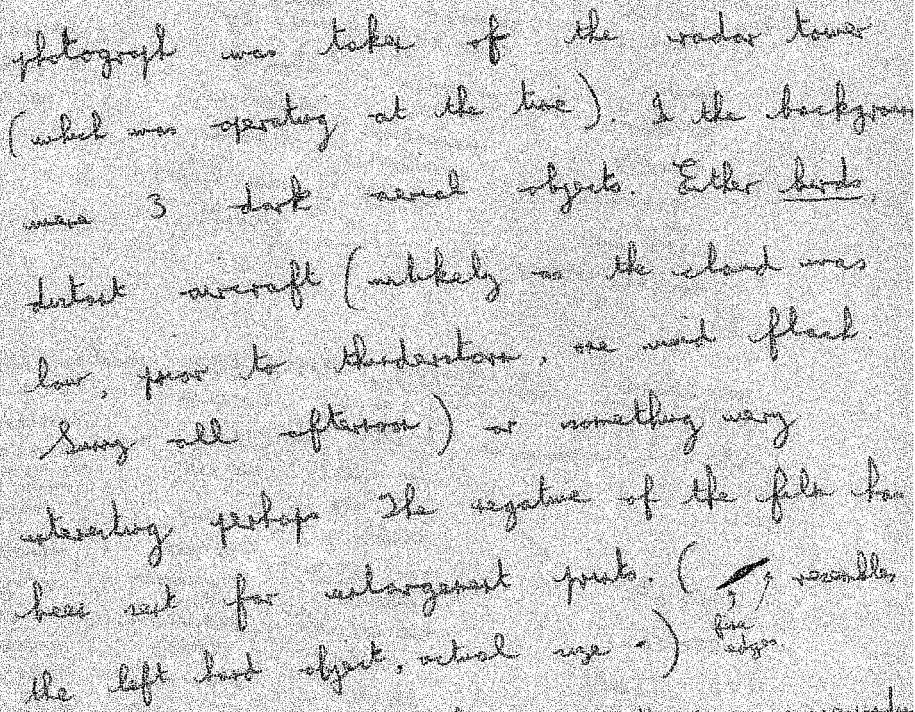 photograph was taken of the radar tower
(which was operating at the time). In the backgroun
were 3 dark aerial objects. Either birds,
distant aircraft (unlikely as the cloud was
low, prior to thunderstorm, one flash
all afternoon) or something very
interesting perhaps The negative of the film has
been sent for enlargement prints. ( resembles
fine
edges.
the left hand object, actual size - )